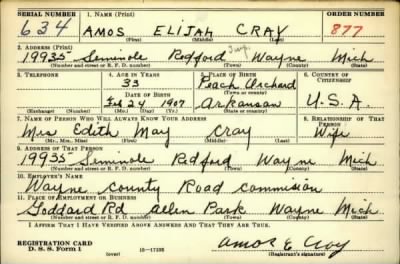 SERIAL NUMBER 1. NAME (Print) ORDER NUMBER
634 AMOS ELIJAH CRAY 877
(First) (Middle) (Last)
2. ADDRESS (Print)
19935 Seminole Redford Twp. Wayne Mich
(Number and street or R. F. D. number) (Town) (County) (State)
3. TELEPHONE 4. AGE IN YEARS 5. PLACE OF BIRTH 6. COUNTRY OF CITIZENSHIP
33 Peach Orchard
DATE OF BIRTH (Town or county)
Feb 24 1907 Arkansas U.S.A.
(Exchange) (Number) (Mo.) (Day) (Yr.) (State or country)
7. NAME OF PERSON WHO WILL ALWAYS KNOW YOUR ADDRESS 8. RELATIONSHIP OF THAT PERSON
Mrs Edith May Cray Wife
(Mr., Mrs., Miss) (First) (Middle) (Last)
9. ADDRESS OF THAT PERSON
19935 Seminole Redford Wayne Mich
(Number and street or R. F. D. number) (Town) (County) (State)
10. EMPLOYER'S NAME
Wayne County Road commision
11. PLACE OF EMPLOYMENT OR BUSINESS
Goddard Rd allen Park Wayne Mich
(Number and street or R. F. D. number) (Town) (County) (State)
I AFFIRM THAT I HAVE VERIFIED ABOVE ANSWERS AND THAT THEY ARE TRUE.
REGISTRATION CARD
D. S. S. Form 1 (over) 16—17105 Amos E Cray
(Registrant's signature)